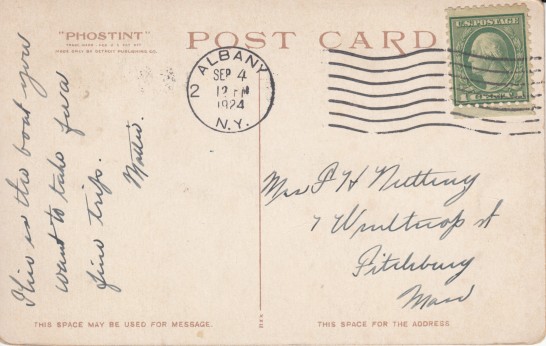 "PHOSTINT"
MADE ONLY BY DETROIT PUBLISHING CO.
POST CARD
U.S. POSTAGE
ALBANY
SEP 4
2 12 PM
1924
N.Y.
This is the boat you
want to take for a
fine trip.
Mollie.
Mrs F H Nutting
7 Winthrop st
Fitchburg
Mass
THIS SPACE MAY BE USED FOR MESSAGE.
THIS SPACE FOR THE ADDRESS